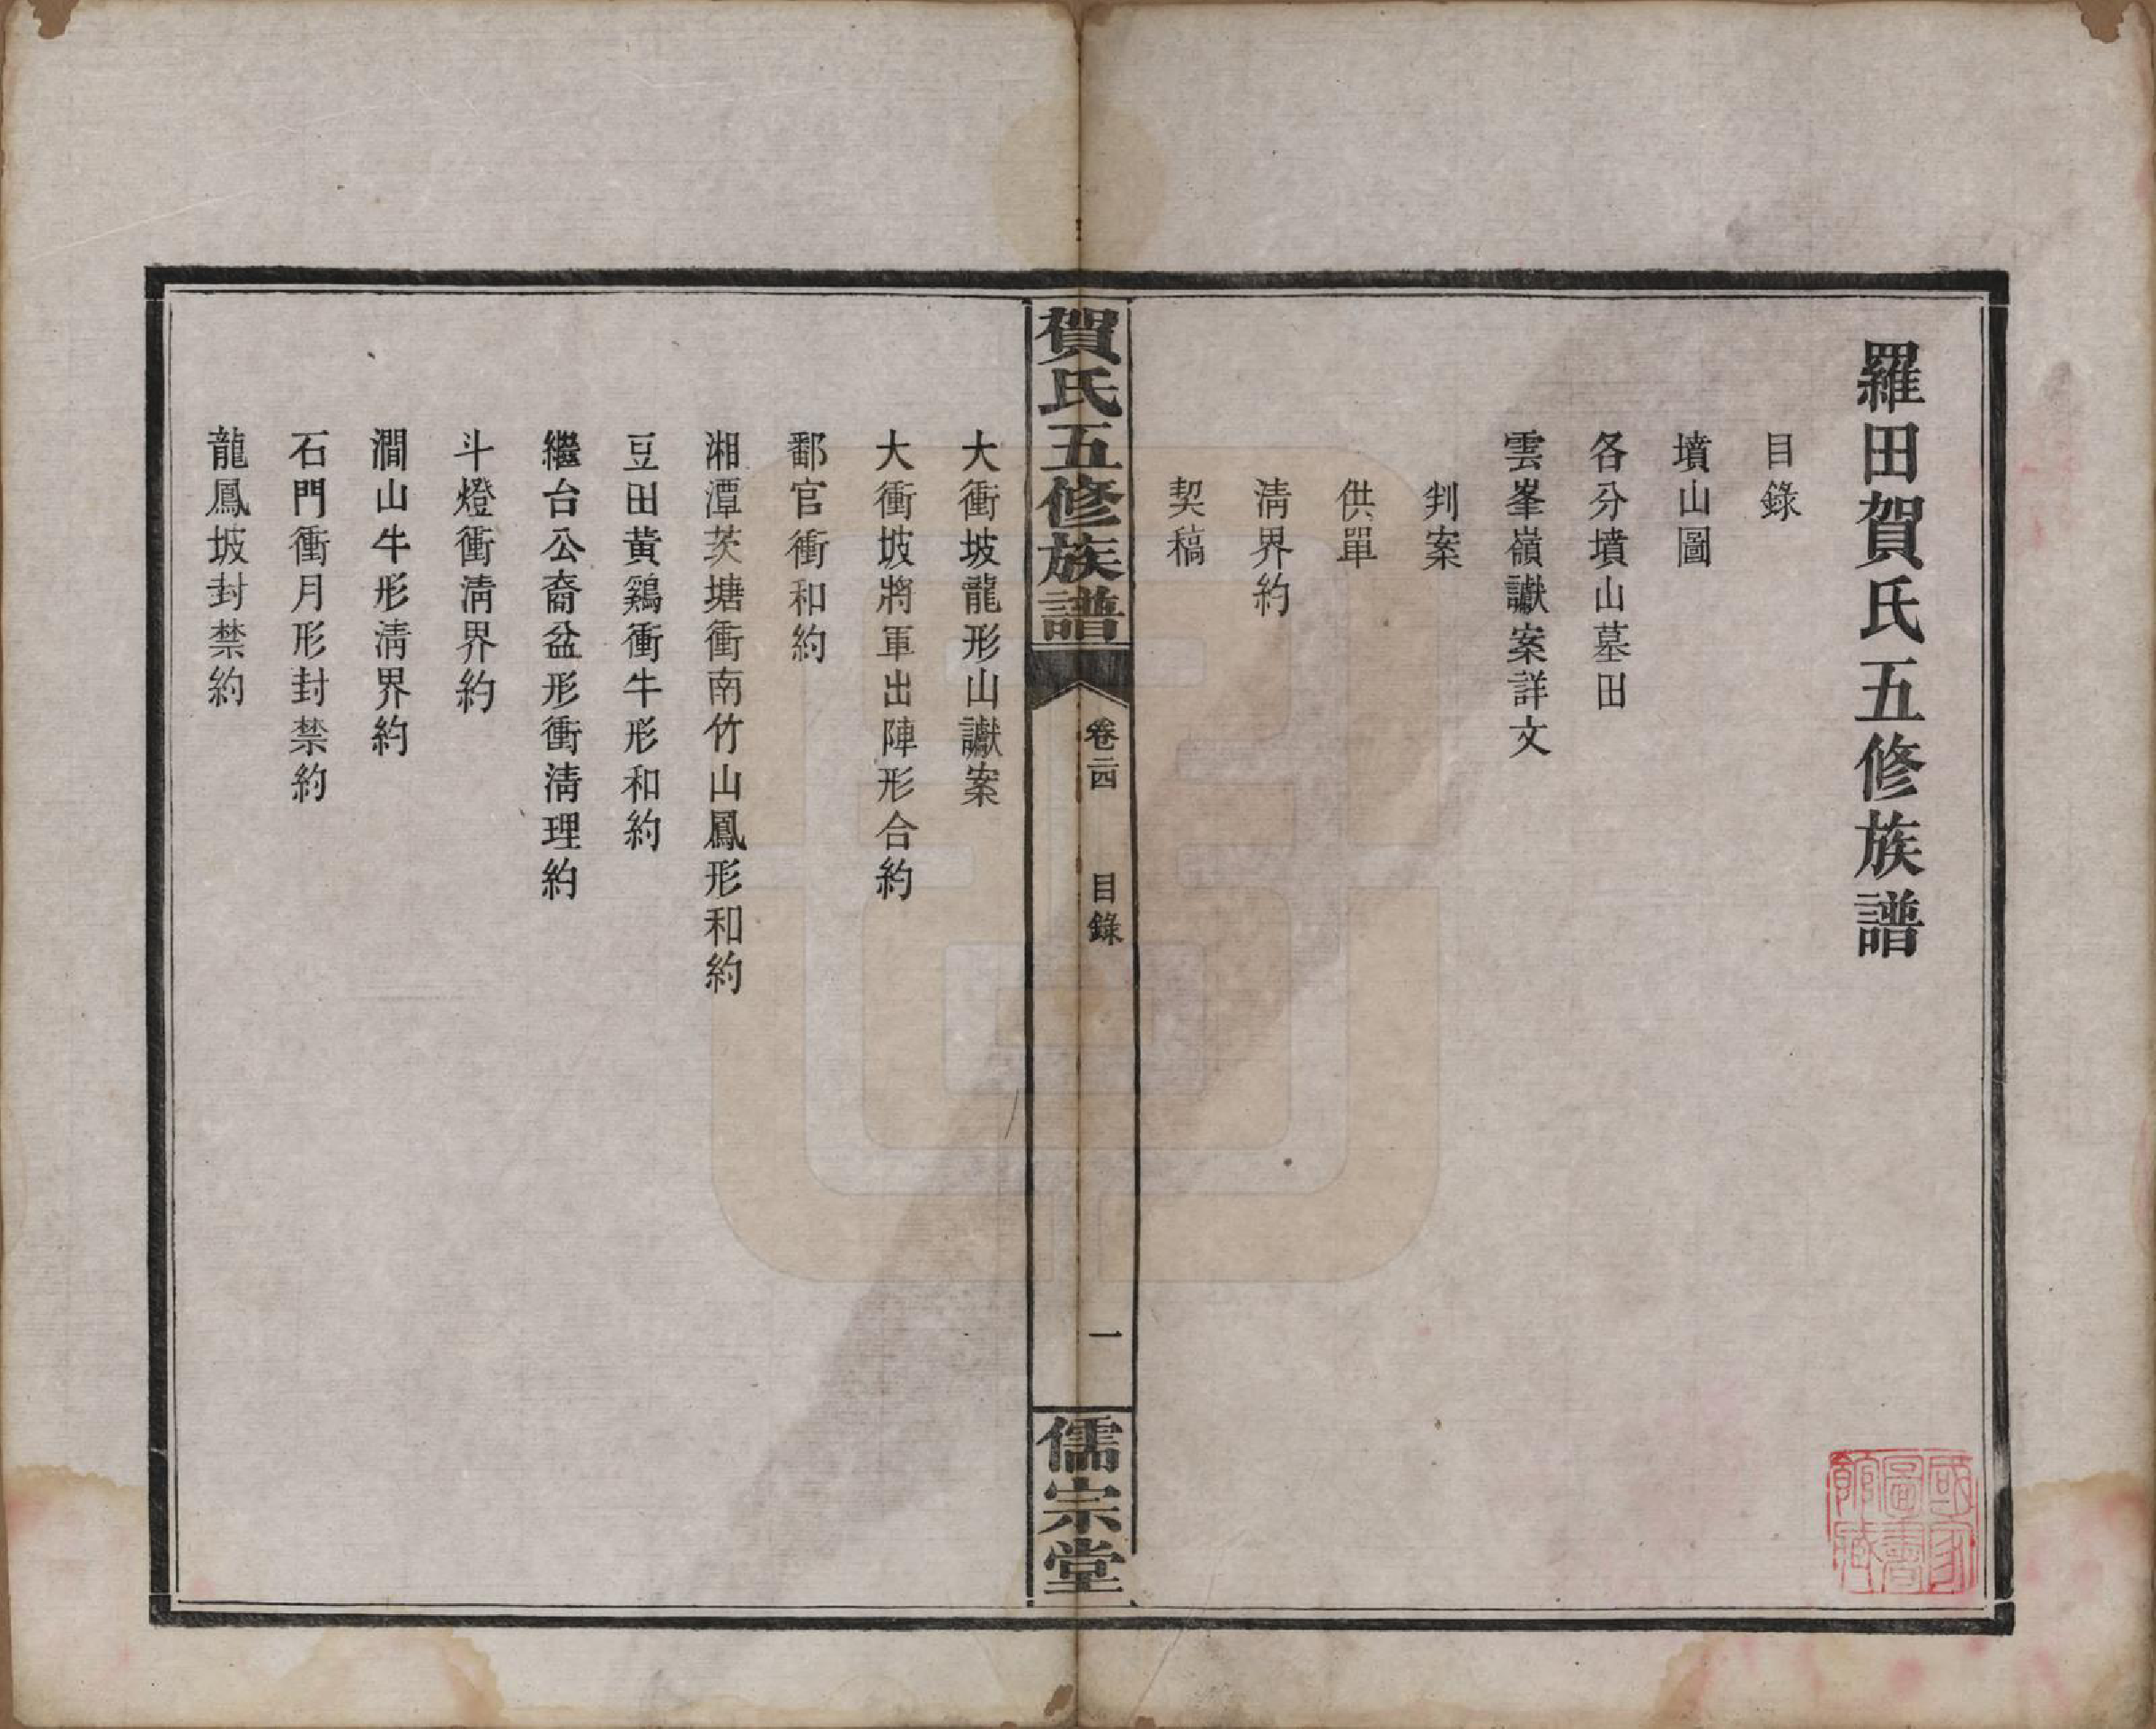 羅田賀氏五修族譜
目錄
墳山圖
各分墳山墓田
雲峯嶺讞案詳文
判案
供單
清界約
契稿
賀氏五修族譜
卷二四
目錄
一
儒宗堂
大衝坡龍形山讞案
大衝坡將軍出陣形合約
鄱官衝和約
湘潭茨塘衝南竹山鳳形和約
豆田黃鷄衝牛形和約
繼台公裔盆形衝清理約
斗燈衝清界約
澗山牛形清界約
石門衝月形封禁約
龍鳳坡封禁約
國家圖書館藏